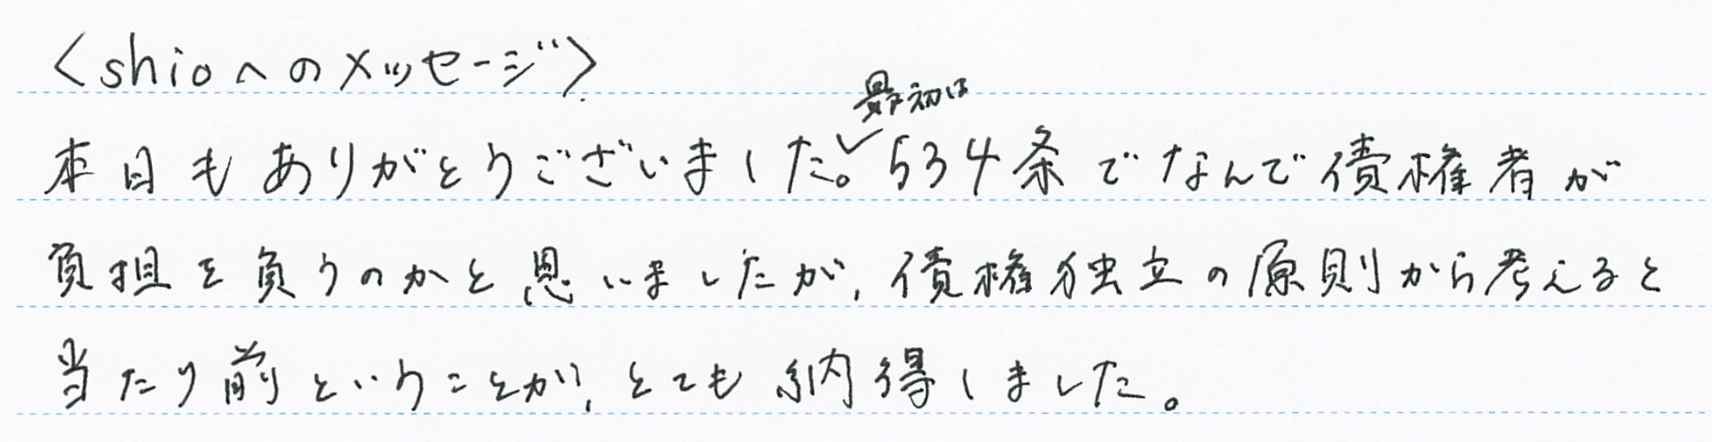 <shioへのメッセージ>
最初は
本日もありがとうございました。534条でなんで債権者が
負担を負うのかと思いましたが、債権独立の原則から考えると
当たり前ということが、とても納得しました。